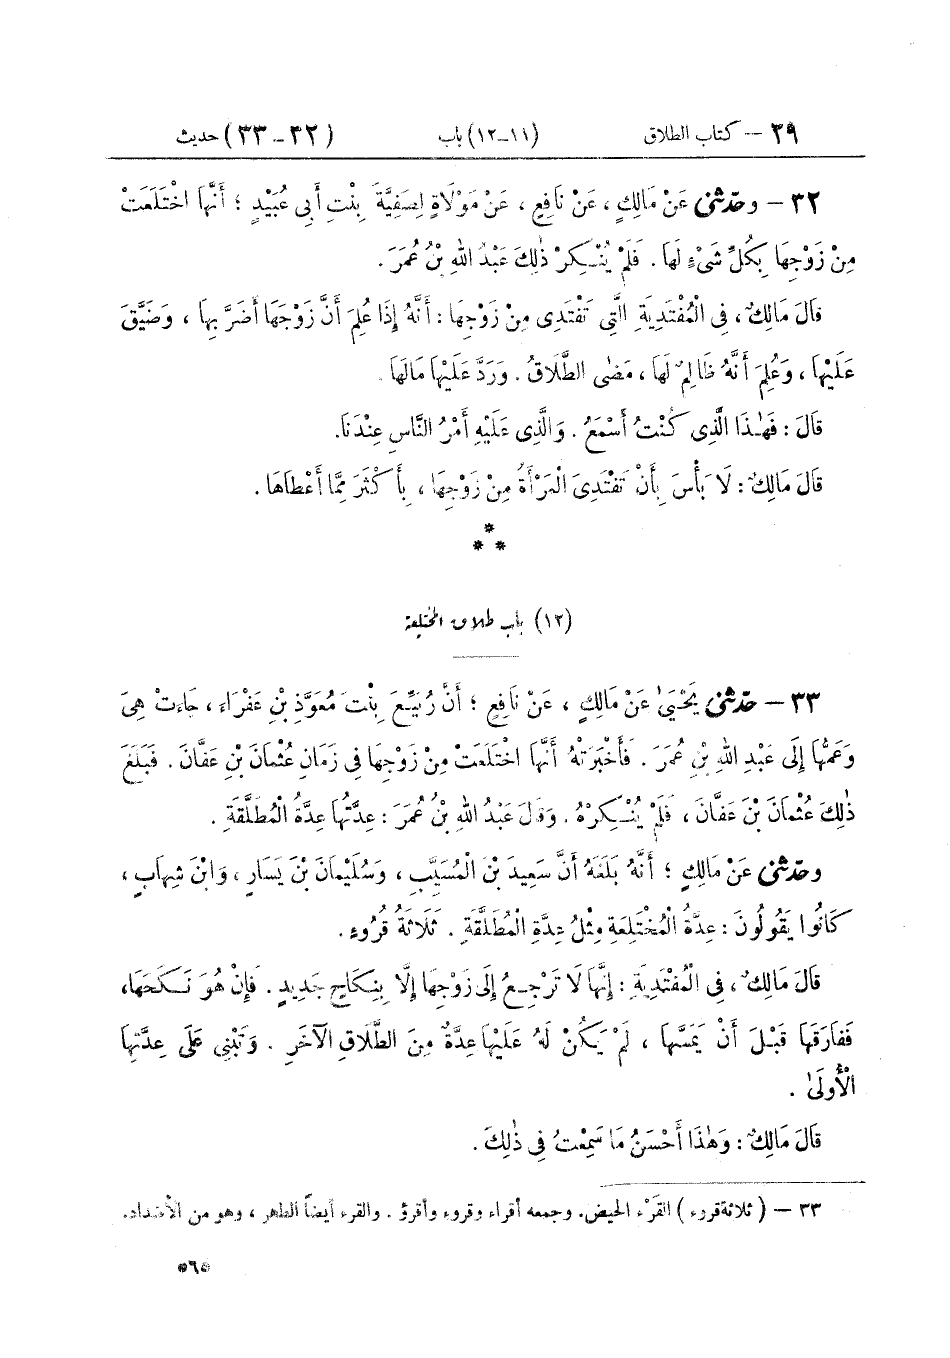 ٢٩ — كتاب الطلاق (١١-١٢) باب (٣٢-٣٣) حديث
٣٢ — وحدّثني عَنْ مَالِكٍ، عَنْ نَافِعٍ، عَنْ مَوْلَاةٍ لِصَفِيَّةَ بِنْتِ أَبِي عُبَيْدٍ؛ أَنَّهَا اخْتَلَعَتْ
مِنْ زَوْجِهَا بِكُلِّ شَيْءٍ لَهَا. فَلَمْ يُنْكِرْ ذٰلِكَ عَبْدُ اللهِ بْنُ عُمَرَ.
قَالَ مَالِكٌ، فِي الْمُفْتَدِيَةِ الَّتِي تَفْتَدِي مِنْ زَوْجِهَا: أَنَّهُ إِذَا عُلِمَ أَنَّ زَوْجَهَا أَضَرَّ بِهَا، وَضَيَّقَ
عَلَيْهَا، وَعُلِمَ أَنَّهُ ظَالِمٌ لَهَا، مَضَى الطَّلَاقُ. وَرَدَّ عَلَيْهَا مَالَهَا.
قَالَ: فَهٰذَا الَّذِي كُنْتُ أَسْمَعُ. وَالَّذِي عَلَيْهِ أَمْرُ النَّاسِ عِنْدَنَا.
قَالَ مَالِكٌ: لَا بَأْسَ بِأَنْ تَفْتَدِيَ الْمَرْأَةُ مِنْ زَوْجِهَا، بِأَكْثَرَ مِمَّا أَعْطَاهَا.
*
* *
(١٢) باب طلاق المختلعة
٣٣ — حدّثني يَحْيَىٰ عَنْ مَالِكٍ، عَنْ نَافِعٍ؛ أَنَّ رُبَيِّعَ بِنْتَ مُعَوِّذِ بْنِ عَفْرَاءَ، جَاءَتْ هِيَ
وَعَمُّهَا إِلَى عَبْدِ اللهِ بْنِ عُمَرَ. فَأَخْبَرَتْهُ أَنَّهَا اخْتَلَعَتْ مِنْ زَوْجِهَا فِي زَمَانِ عُثْمَانَ بْنِ عَفَّانَ. فَبَلَغَ
ذٰلِكَ عُثْمَانَ بْنَ عَفَّانَ، فَلَمْ يُنْكِرْهُ. وَقَالَ عَبْدُ اللهِ بْنُ عُمَرَ: عِدَّتُهَا عِدَّةُ الْمُطَلَّقَةِ.
وحدّثني عَنْ مَالِكٍ؛ أَنَّهُ بَلَغَهُ أَنَّ سَعِيدَ بْنَ الْمُسَيَّبِ، وَسُلَيْمَانَ بْنَ يَسَارٍ، وَابْنَ شِهَابٍ،
كَانُوا يَقُولُونَ: عِدَّةُ الْمُخْتَلِعَةِ مِثْلُ عِدَّةِ الْمُطَلَّقَةِ. ثَلَاثَةُ قُرُوءٍ.
قَالَ مَالِكٌ، فِي الْمُفْتَدِيَةِ: إِنَّهَا لَا تَرْجِعُ إِلَى زَوْجِهَا إِلَّا بِنِكَاحٍ جَدِيدٍ. فَإِنْ هُوَ نَكَحَهَا،
فَفَارَقَهَا قَبْلَ أَنْ يَمَسَّهَا، لَمْ يَكُنْ لَهُ عَلَيْهَا عِدَّةٌ مِنَ الطَّلَاقِ الْآخَرِ. وَتَبْنِي عَلَى عِدَّتِهَا
الْأُولَىٰ.
قَالَ مَالِكٌ: وَهٰذَا أَحْسَنُ مَا سَمِعْتُ فِي ذٰلِكَ.
٣٣ — (ثلاثة قروء) القَرْء الحيض. وجمعه أقراء وقروء وأقرؤ. والقرء أيضاً الطهر، وهو من الأضداد.
٥٦٥